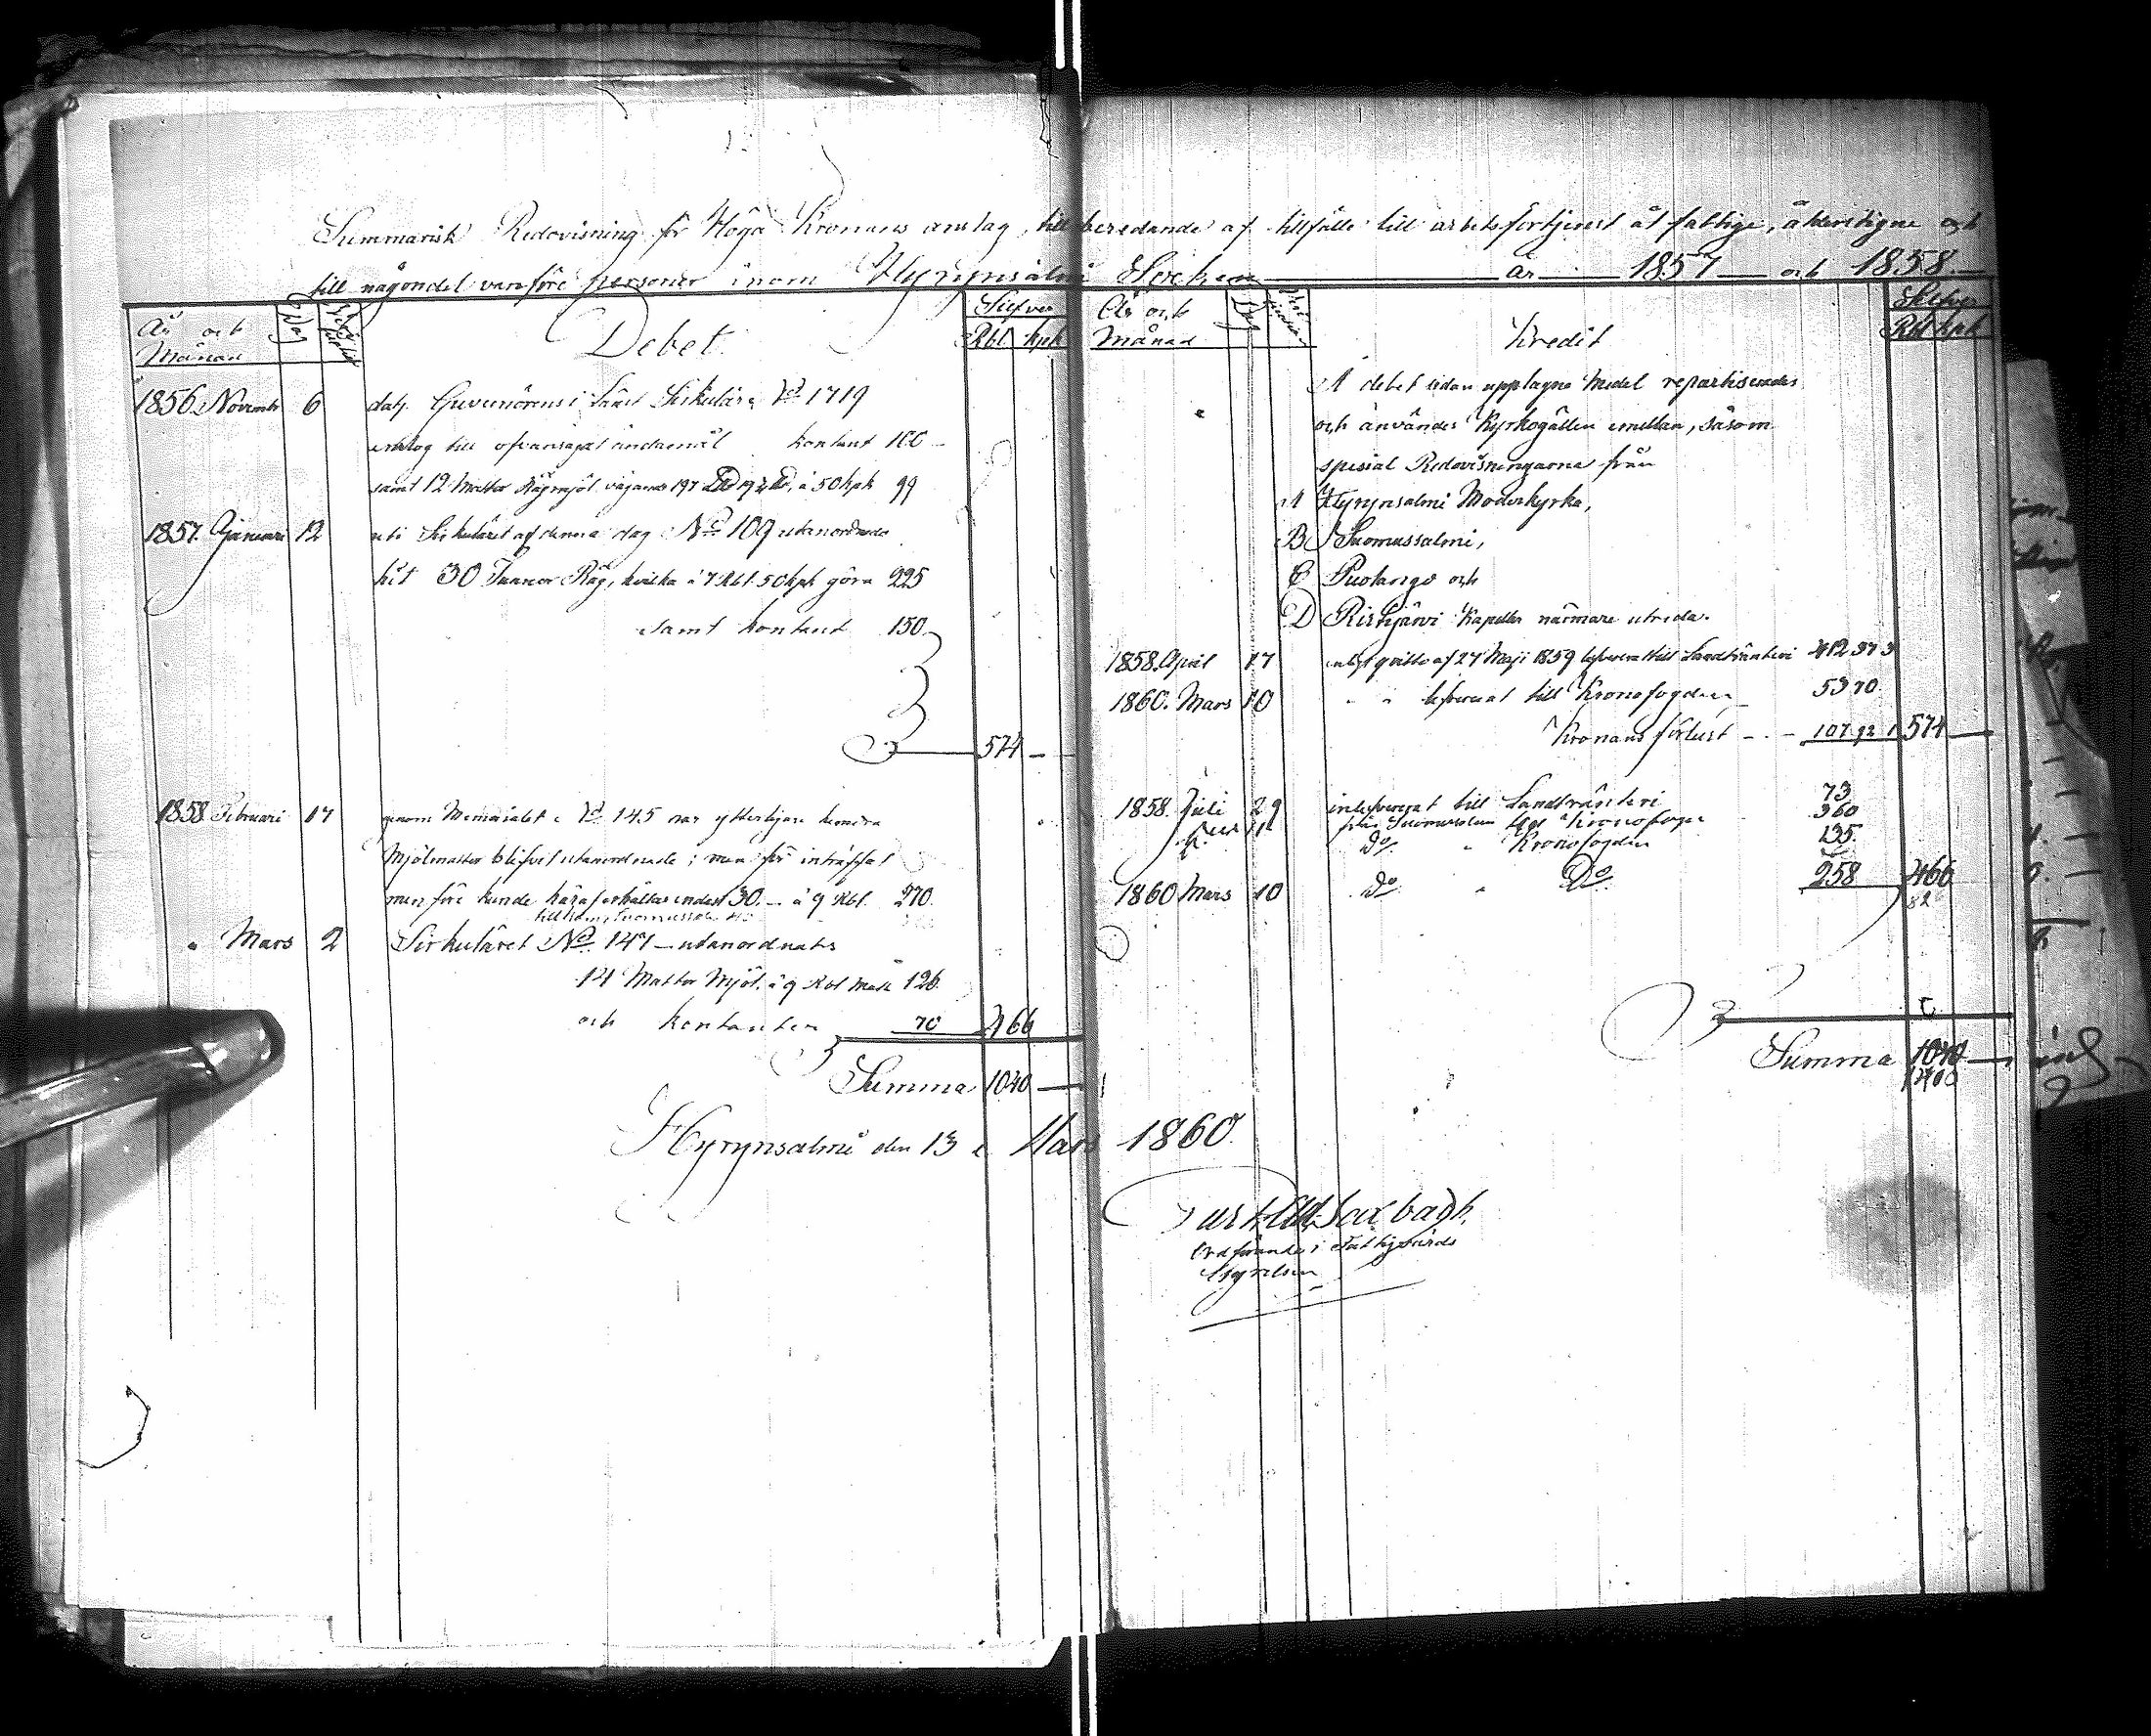 Summarisk Redovisning för Höga Kronans anslag, till beredande af tillfälle till arbetsförtjenst åt fattige, ålderstigne och
till någondel vanföre personer inom Hyrynsalmi Socken år 1857 och 1858.
År och Månad Dag Debet. Silfver Rbl kpk
1856 Novemb 6 Guvernörens i Länet Sirkulär No 1719
till ofvansagdt ändamål kontant 100 -
samt 12 Mattor Rågmjöl vägande 197 à 50 kpk 99
1857. Januari 12 uti Sirkuläret af denna dag No 109 utanordnade
hit 30 Tunnor Råg, hvilka à 7 Rbl. 50 kpk göra 225
samt kontant 150.
574 -
1858 Februari 17 genom Memorialet No 145 var ytterligare hundra
Mjölmattor blifvit utanordnade; men för inträffat
menföre kunde häraf erhållas endast 30. - à 9 Rbl. 270.
" Mars 2 Sirkuläret No. 147 - utanordnats
14 Mattor Mjöl. à 9 Rbl 126.
och kontanter 70 466
Summa 1040 -
År och Månad Dag Kredit Silfver Rbl kpk
A debet sidan upptagne Medel repartiserades
och användes Kyrkogällen emellan, såsom
spesial Redovisningarne från
A Hyrynsalmi Moderkyrka,
B Suomussalmi,
C Puolango och
D Ristijärvi Kapeller närmare utreda.
1858. April 17 qvitto af 27 Maji 1859 till Landtränteri 412 37
1860. Mars 10 " " till Kronofogden 53 70
Kronans förlust - - 107 92 574 -
1858. Juli 29 inlefvererat till Landtränteri 73
från Suomussalmi Kronofogde 360
Do. " Kronofogden 135.
1860 Mars 10 Do. " Do. 258 466
82
Summa 1040 -
1400
Hyrynsalmi den 13 Mars 1860.
Saxbäck,
Ordförande i Fattigvårds
Styrelsen